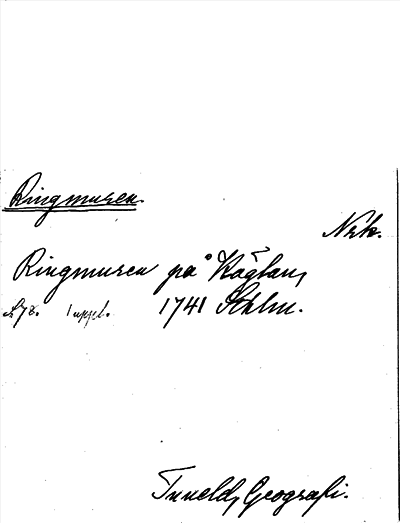 Ringmuren
Nrk.
Ringmuren på Käglan,
s. 78. 1 uppl. 1741 Sthlm.
Tuneld, Geografi.